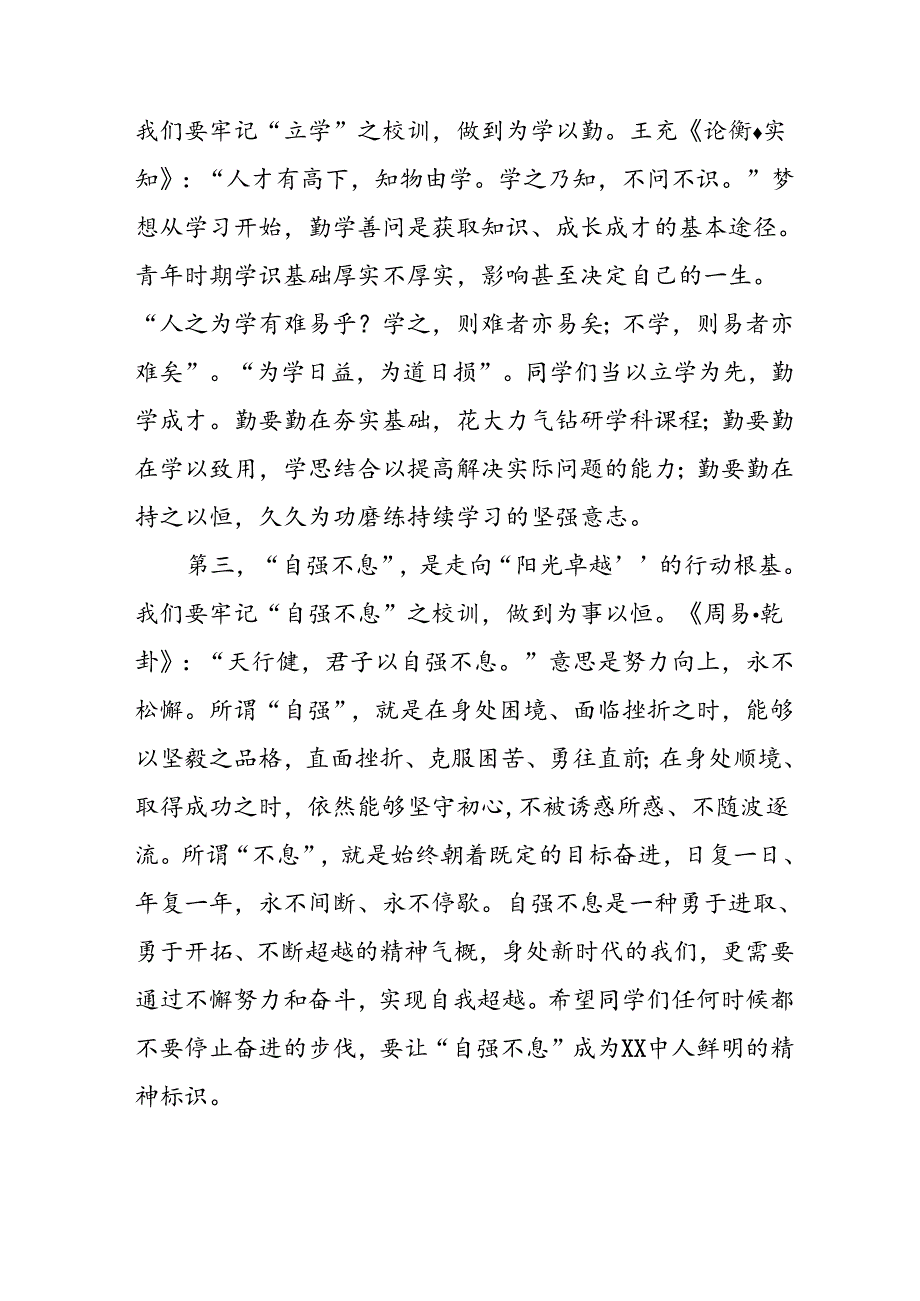 我们要牢记“立学”之校训，做到为学以勤。王充《论衡♦实
知》：“人才有高下，知物由学。学之乃知，不问不识。”梦
想从学习开始，勤学善问是获取知识、成长成才的基本途径。
青年时期学识基础厚实不厚实，影响甚至决定自己的一生。
“人之为学有难易乎？学之，则难者亦易矣；不学，则易者亦
难矣”。“为学日益，为道日损”。同学们当以立学为先，勤
学成才。勤要勤在夯实基础，花大力气钻研学科课程；勤要勤
在学以致用，学思结合以提高解决实际问题的能力；勤要勤在
持之以恒，久久为功磨练持续学习的坚强意志。
第三，“自强不息”，是走向“阳光卓越’’的行动根基。
我们要牢记“自强不息”之校训，做到为事以恒。《周易•乾
卦》：“天行健，君子以自强不息。”意思是努力向上，永不
松懈。所谓“自强”，就是在身处困境、面临挫折之时，能够
以坚毅之品格，直面挫折、克服困苦、勇往直前；在身处顺境、
取得成功之时，依然能够坚守初心,不被诱惑所惑、不随波逐
流。所谓“不息”，就是始终朝着既定的目标奋进，日复一日、
年复一年，永不间断、永不停歇。自强不息是一种勇于进取、
勇于开拓、不断超越的精神气概，身处新时代的我们，更需要
通过不懈努力和奋斗，实现自我超越。希望同学们任何时候都
不要停止奋进的步伐，要让“自强不息”成为XX中人鲜明的精
神标识。